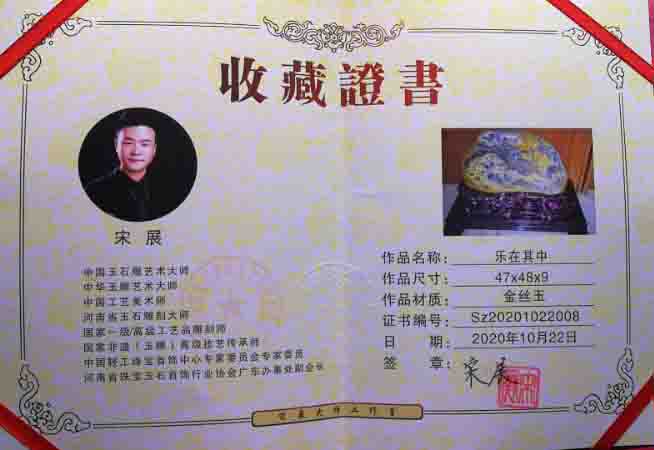 收藏證書
宋展
中国玉石雕艺术大师
中华玉雕艺术大师
中国工艺美术师
河南省玉石雕刻大师
国家一级/高级工艺品雕刻师
国家非遗（玉雕）高级技艺传承师
中国轻工珠宝首饰中心专家委员会专家委员
河南省珠宝玉石首饰行业协会广东办事处副会长
作品名称：乐在其中
作品尺寸：47x48x9
作品材质：金丝玉
证书编号：Sz20201022008
日期：2020年10月22日
签章：宋展
宋展大师工作室